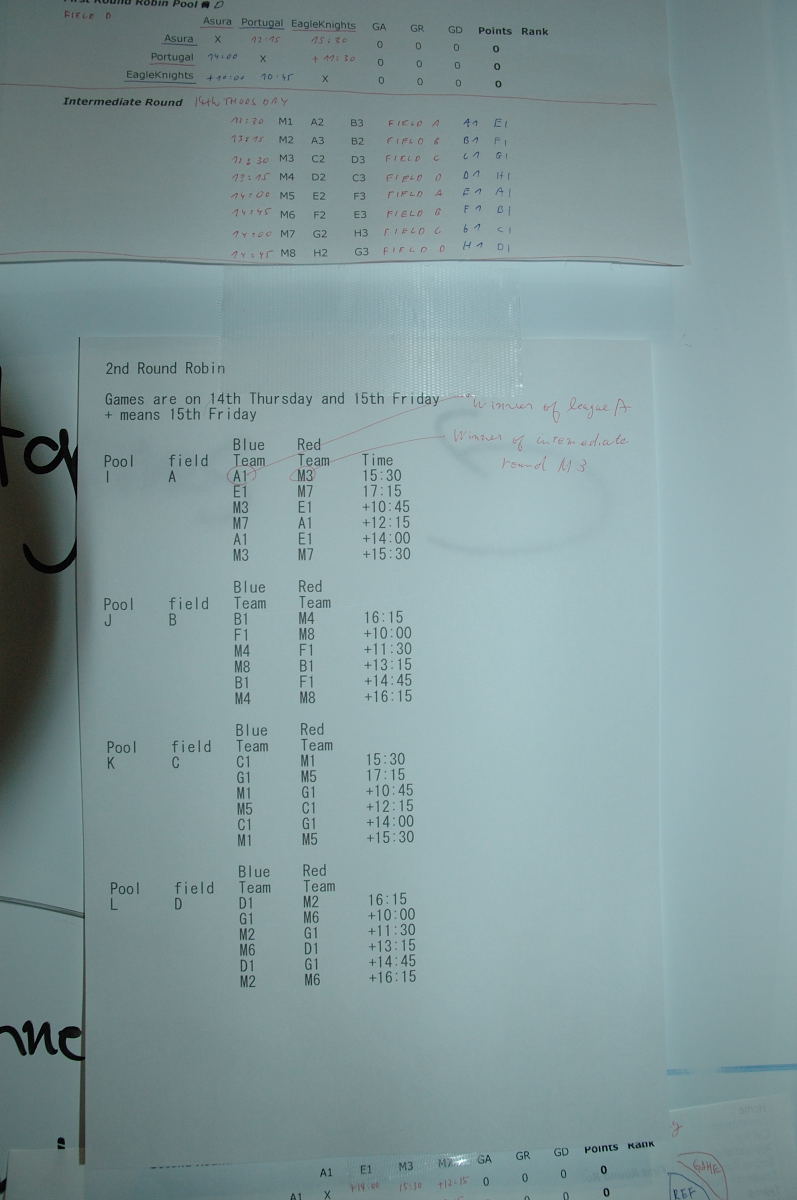 First Round Robin Pool
FIELD D
Asura Portugal EagleKnights GA GR GD Points Rank
Asura X 12:15 15:30 0 0 0 0
Portugal 14:00 X +11:30 0 0 0 0
EagleKnights +10:00 10:45 X 0 0 0 0
Intermediate Round 14th THURSDAY
M1 A2 B3 FIELD A A1 E1
13:15 M2 A3 B2 FIELD B B1 F1
12:30 M3 C2 D3 FIELD C C1 G1
13:15 M4 D2 C3 FIELD D D1 H1
14:00 M5 E2 F3 FIELD A E1 A1
14:45 M6 F2 E3 FIELD B F1 B1
14:00 M7 G2 H3 FIELD C G1 C1
14:45 M8 H2 G3 FIELD D H1 D1
2nd Round Robin
Games are on 14th Thursday and 15th Friday
+ means 15th Friday
Winner of league A
Winner of intermediate
round M3
Blue Red
Pool field Team Team Time
I A A1 M3 15:30
E1 M7 17:15
M3 E1 +10:45
M7 A1 +12:15
A1 E1 +14:00
M3 M7 +15:30
Blue Red
Pool field Team Team
J B B1 M4 16:15
F1 M8 +10:00
M4 F1 +11:30
M8 B1 +13:15
B1 F1 +14:45
M4 M8 +16:15
Blue Red
Pool field Team Team
K C C1 M1 15:30
G1 M5 17:15
M1 G1 +10:45
M5 C1 +12:15
C1 G1 +14:00
M1 M5 +15:30
Blue Red
Pool field Team Team
L D D1 M2 16:15
G1 M6 +10:00
M2 G1 +11:30
M6 D1 +13:15
D1 G1 +14:45
M2 M6 +16:15
A1 E1 M3 M7 GA GR GD Points Rank
A1 X +14:00 15:30 +12:15 0 0 0 0
GAME
REF